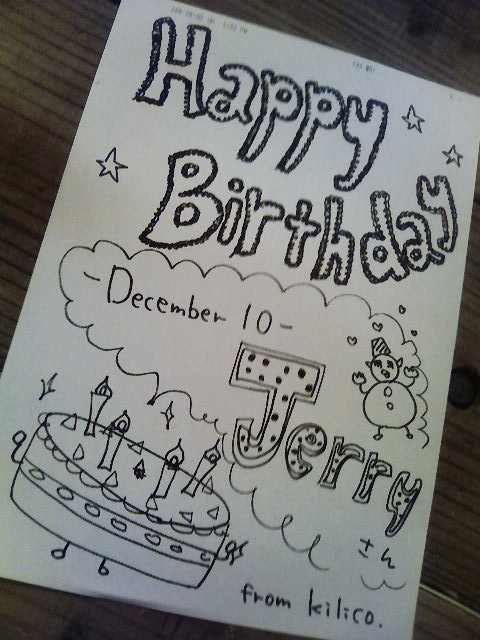 Happy
Birthday
-December 10-
Jerry
さん
from kilico.